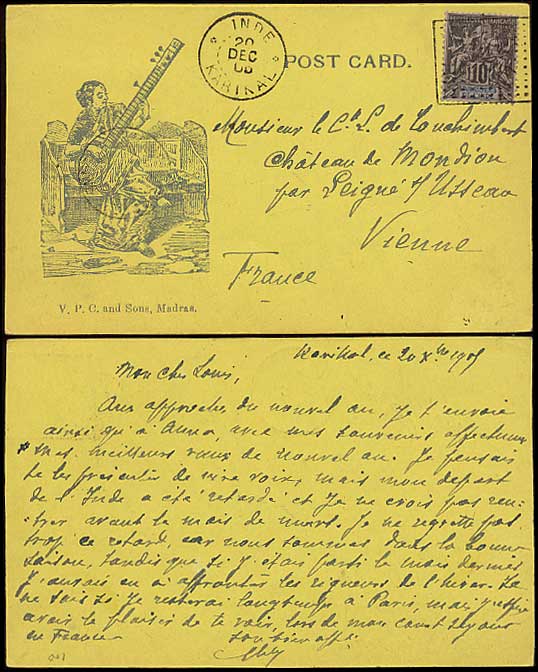 INDE
20
DEC
KARIKAL
POST CARD.
10
Monsieur le Cte L. de Touchimbert
Château de Mondion
par Leigné s/ Usseau
Vienne
France
V. P. C. and Sons, Madras.
Karikal, ce 20 Xbre
Mon cher Louis,
Aux approches du nouvel an, je t'envoie
ainsi qu'à Anna, avec mes souvenirs affectueux
mes meilleurs vœux de nouvel an. Je pensais
te les présenter de vive voix, mais mon départ
de l'Inde a été retardé et je ne crois pas ren-
trer avant le mois de mars. Je ne regrette pas
trop ce retard, car nous sommes dans la bonne
saison, tandis que si j'étais parti le mois dernier
j'aurais eu à affronter les rigueurs de l'hiver. Je
ne sais si je resterai longtemps à Paris, mais j'espère
avoir le plaisir de te voir, lors de mon court séjour
en France
ton bien aff